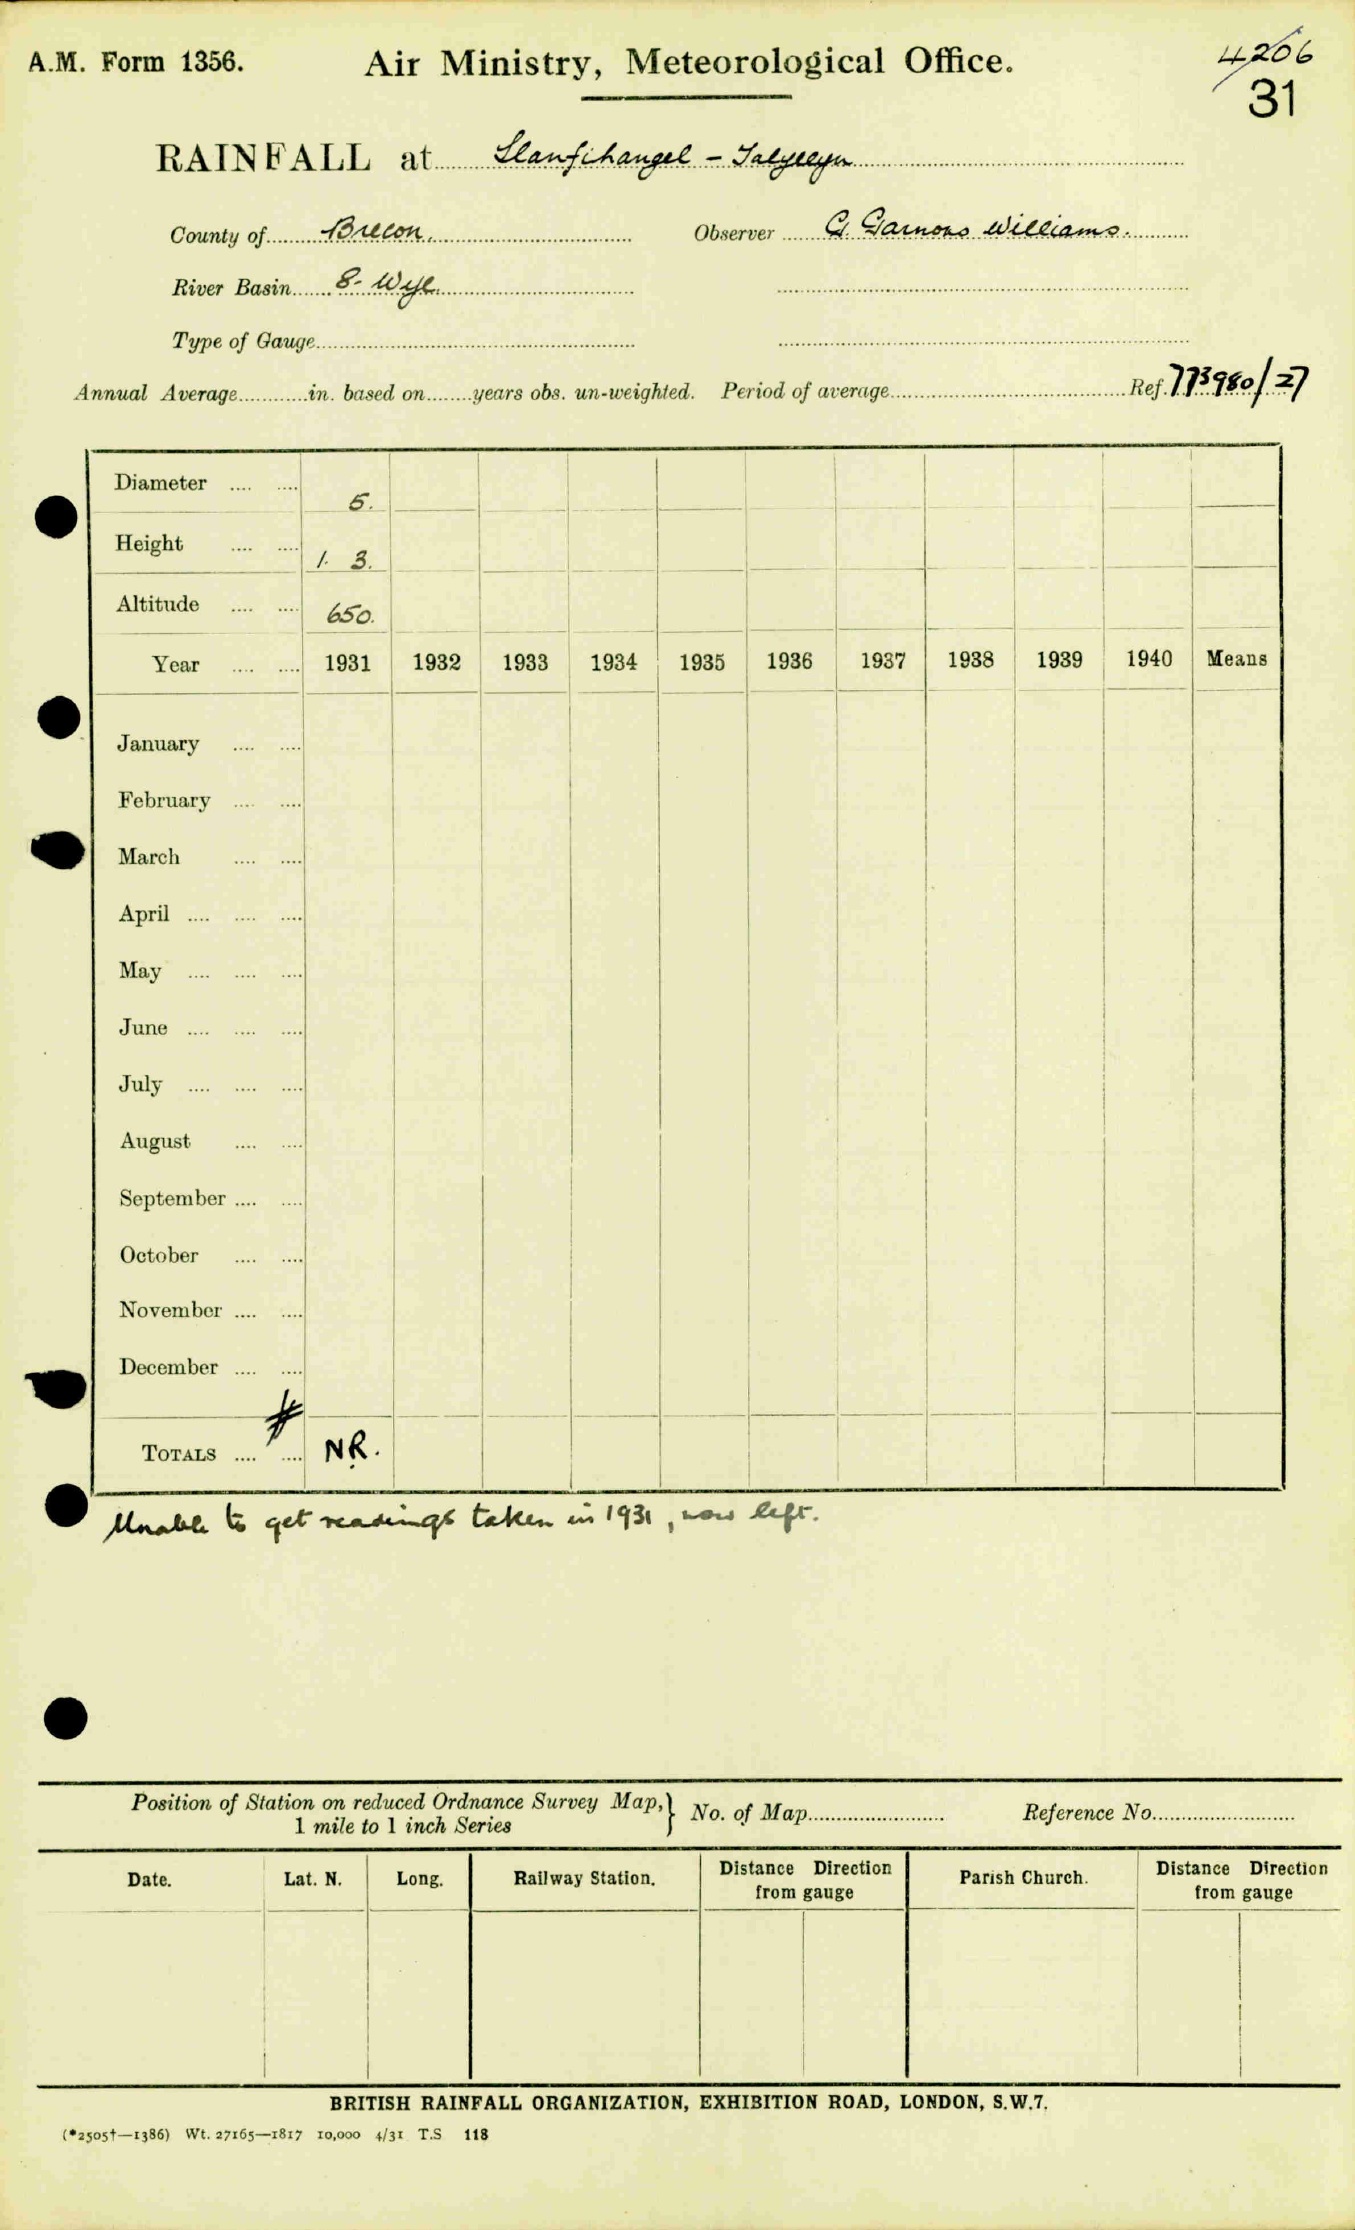 A.M. Form 1356. Air Ministry, Meteorological Office. 4206
31
RAINFALL at Llanfihangel - Talyllyn
County of Brecon. Observer G. Garnons Williams.
River Basin 8. Wye
Type of Gauge
Annual Average in. based on years obs. un-weighted. Period of average Ref. 773980/27
Diameter .... .... 5.
Height .... .... 1. 3.
Altitude .... .... 650.
Year .... .... 1931 1932 1933 1934 1935 1936 1937 1938 1939 1940 Means
January .... ....
February .... ....
March .... ....
April .... .... ....
May .... .... ....
June .... .... ....
July .... .... ....
August .... ....
September .... ....
October .... ....
November .... ....
December .... ....
#
TOTALS .... .... N.R.
Unable to get readings taken in 1931, now left.
Position of Station on reduced Ordnance Survey Map, } No. of Map Reference No.
1 mile to 1 inch Series
Date. Lat. N. Long. Railway Station. Distance Direction from gauge Parish Church. Distance Direction from gauge
BRITISH RAINFALL ORGANIZATION, EXHIBITION ROAD, LONDON, S.W.7.
(*2505†—1386) Wt. 27165—1817 10,000 4/31 T.S 118